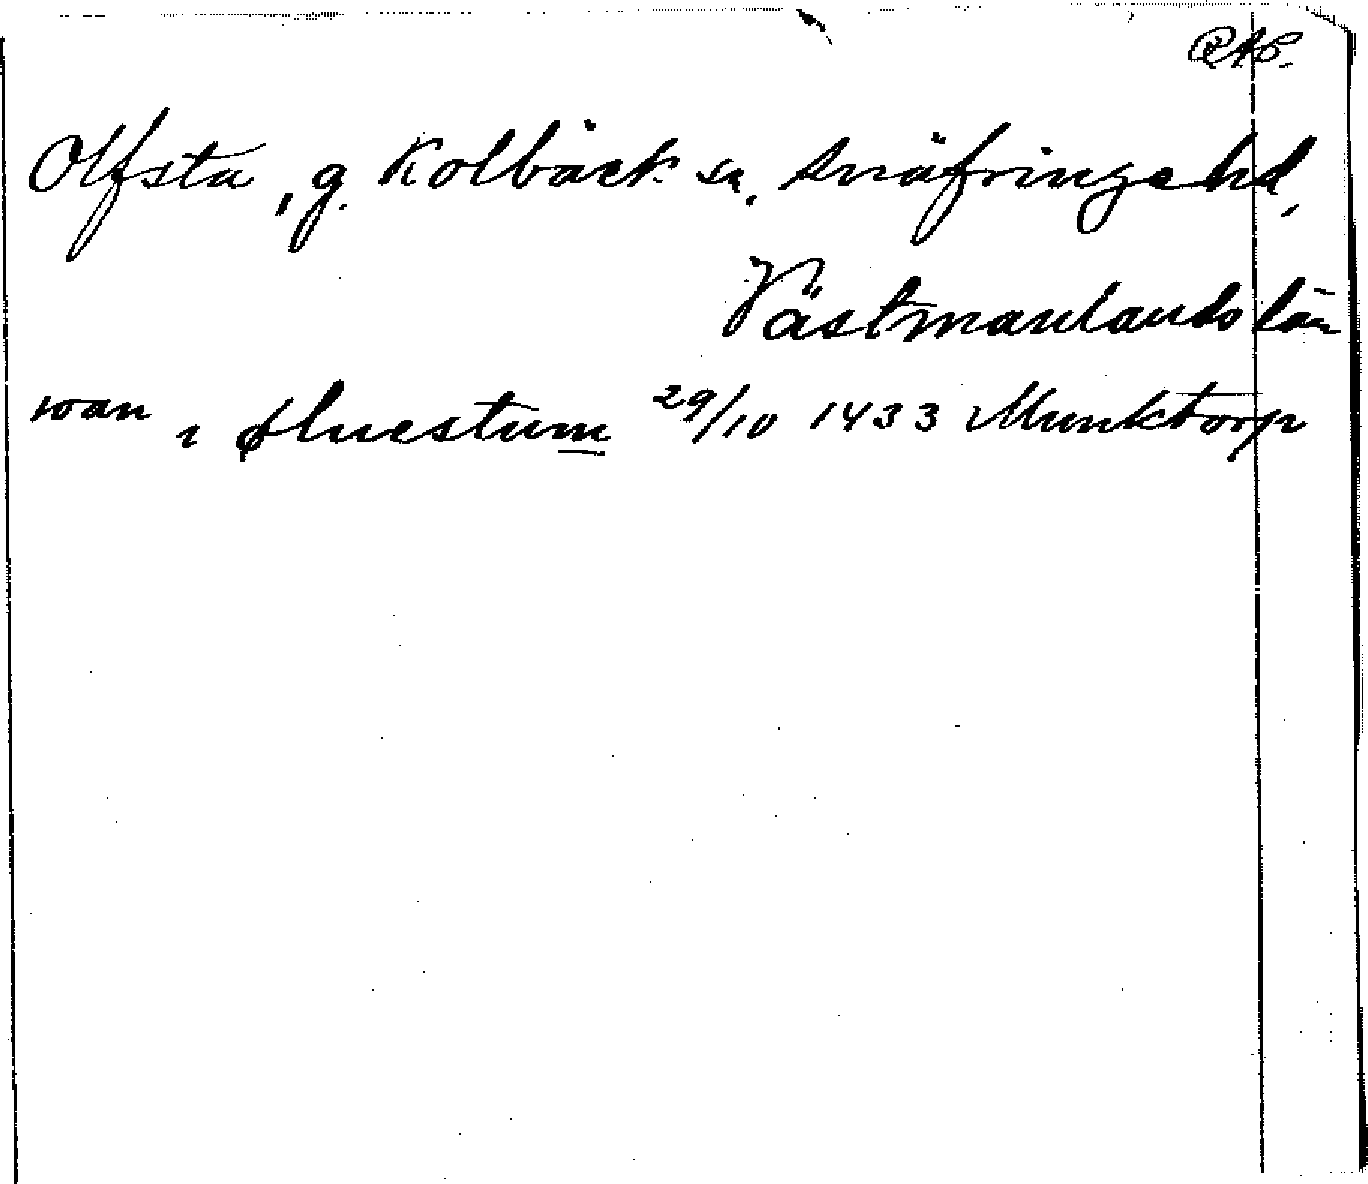 RAP.
Olfsta, g. Kolbäck sn. Snäfringe hd,
Västmanlands län
wan i øluestum 29/10 1433 Munktorp